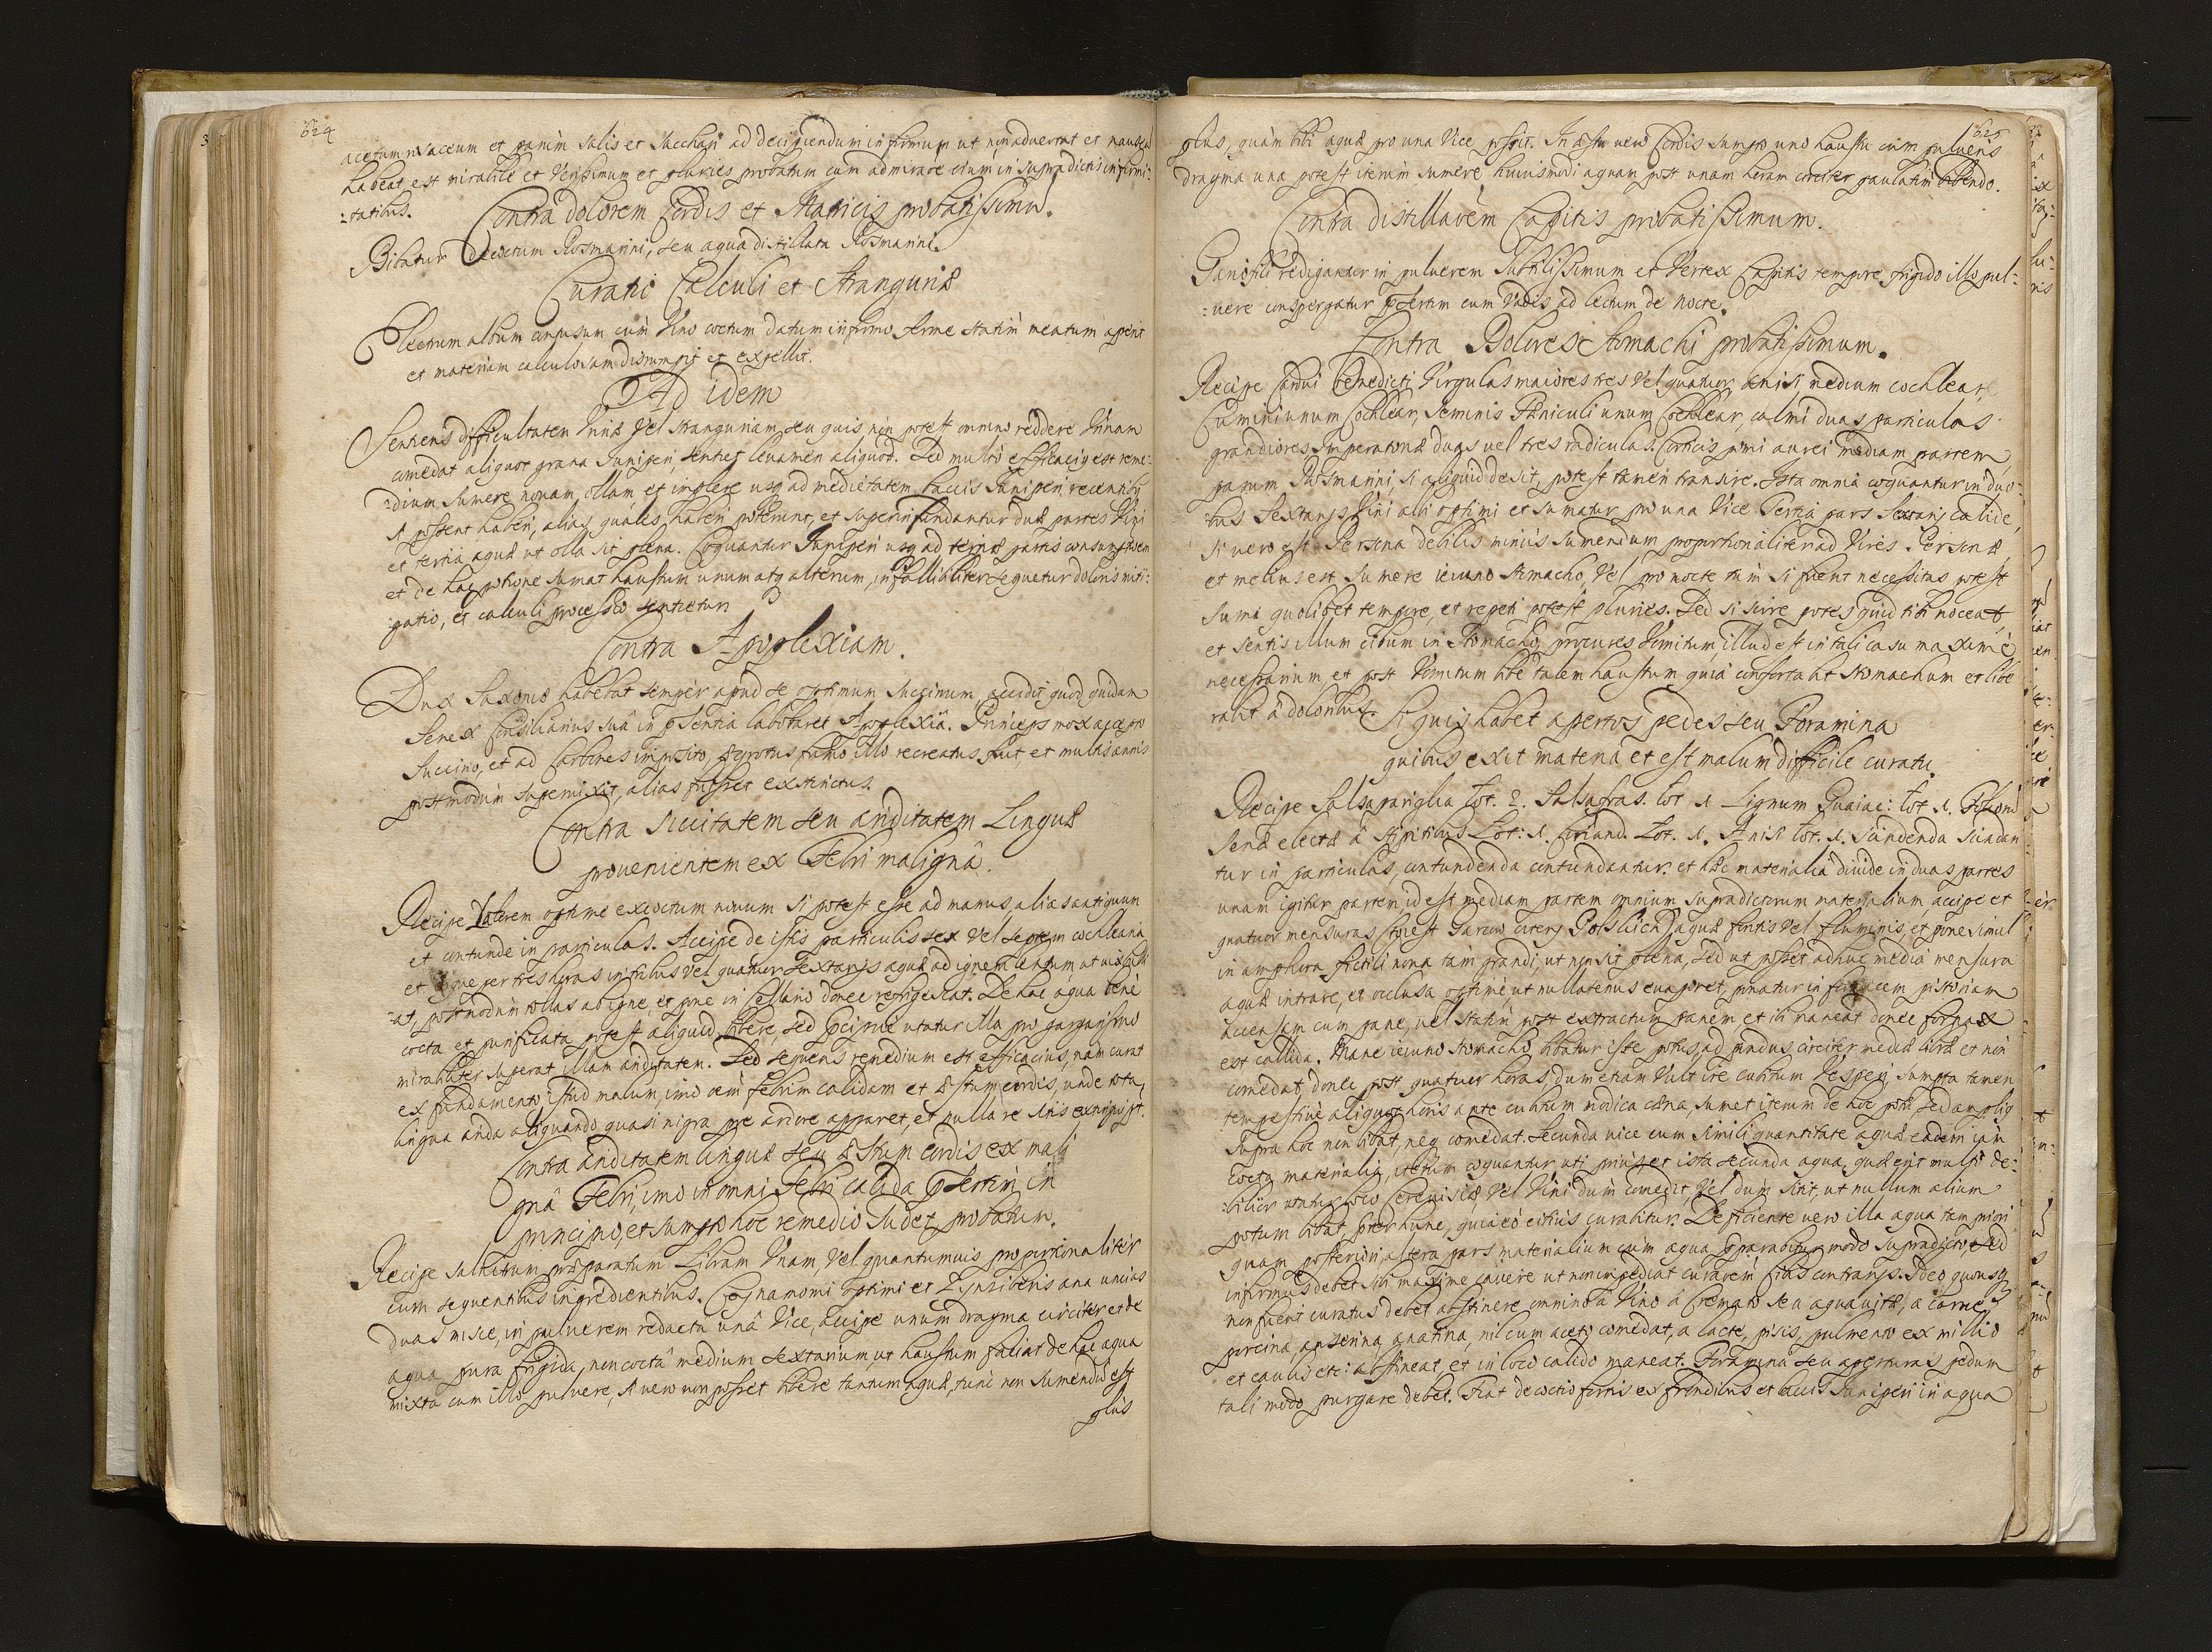 624
acetum rosaceum et parum salis et Sacchari ad decipiendum infirmum ut non aduertat et nauseam
habeat, est mirabile et Verissimum et pluries probatum cum admiratione etiam in supradictis infirmi:
:tatibus.
Contra dolorem Cordis et Matricis probatissimum.
Bibatur Decoctum Rosmarini, seu aqua distillata Rosmarini.
Curatio Calculi et Stranguriæ
Electrum album contusum cum Vino coctum datum infirmo ferme statim meatum aperit
et materiam calculosam disrumpit et expellit.
Ad idem
Sentiens difficultatem Urinæ Vel stranguriam, seu quis non potest omnino reddere Urinam
comedat aliquot grana Juniperi, sentiet leuamen aliquod. Sed multo efficacius est reme:
:dium sumere nouam ollam et implere usq ad medietatem baccis Juniperi recentibus
si possent haberi, alias quales haberi poterunt, et superinfundantur duæ partes Vini
et tertia aquæ ut olla sit plena. Coquantur Juniperi usq ad tertiæ partis consumptionem
et de hac potione sumat haustum unum atq alterum, infallibiliter sequetur doloris miti:
:gatio, et calculi processio sentietur.
Contra Apoplexiam.
Dux Saxoniæ habebat semper apud se optimum Succinum, accidit quod quidam
Senex Consiliarius suâ in pñsentia laboraret Apoplexiâ. Princeps mox accepto
Succino, et ad Carbones imposito, ægrotus fumo illo recreatus fuit, et multis annis
postmodum superuixit, alias fuisset exstinctus.
Contra siccitatem seu ariditatem Linguæ
prouenientem ex Febri malignâ.
Recipe Laterem optime excoctum nouum si potest esse ad manus, alias antiquum
et contunde in particulas. Accipe de istis particulis sex vel septem cochlearia
et coque per tres horas in tribus vel quatuor sextarijs aquæ ad ignem lentum ut uix bulli
:at, postmodum tollas ab igne, et pone in Cellario donec refrigescat. De hac aqua bene
cocta et purificata potest aliquid bibere, sed præcipue utatur illa pro gargarismo
mirabiliter superat illam ariditatem. Sed sequens remedium est efficacius, nam curat
ex fundamento istud malum, imo oem febrim calidam et æstum cordis, unde tota
lingua arida aliquando quasi nigra præ ardore apparet, et nulla re sitis extingui pt.
Contra ariditatem linguæ seu æstum cordis ex mali
gnâ Febri, imo in omni Febri calida psertim in
principio, et sumpto hoc remedio sudet, probatum.
Recipe Salnitrum præparatum Libram Unam, Vel quantumuis proportionaliter
cum sequentibus ingredientibus. Cynamomi optimi et Zynziberis ana uncias
duas misce, in puluerem redacta unâ Vice, accipe unum dragma circiter et de
aqua pura frigida, non coctâ medium sextarium, ut haustum faciat de hac aqua
mixta cum illo puluere, si uero non posset bibere tantum aquæ, tunc non sumendum est
plus
625
plus, quàm bibi aquæ pro una Vice possit. In æstu uero Cordis sumpto uno haustu cum pulueris
dragma una potest iterum sumere huiusmodi aquam post unam horam circiter paulatim bibendo.
Contra distillationem Capitis probatissimum.
Gariofili redigantur in puluerem subtilissimum et Vertex Capitis tempore frigido illo pul:
:uere conspergatur psertim cum Vadis ad lectum de nocte.
Contra Dolores Stomachi probatissimum.
Recipe Cardui Benedicti Virgulas maiores tres Vel quatuor Anisi medium cochlear,
Cumini unum Cochlear, Seminis Fæniculi unum Cochlear, calmi duas particulas
grandiores, Imperatoriæ duas uel tres radiculas. Corticis pomi aurei mediam partem,
parum Rosmarini, si aliquid desit, potest tamen transire. Ista omnia coquantur in duo:
:bus Sextarijs Vini albi optimi et sumatur pro una Vice Tertia pars Sextarij calide,
si uero est Persona debilis minus sumendum proportionaliter ad Vires Personæ,
et melius est sumere ieiuno stomacho, Vel pro nocte tam si fuerit necessitas potest
sumi quolibet tempore, et repeti potest pluries. Sed si scire potes quid tibi noceat,
et sentis illum cibum in Stomacho, procures Vomitum, illud est in tali casu maxime
necessarium, et post Vomitum bibe talem haustum quia confortabit stomachum et libe
rabit â doloribus.
Si quis habet apertos pedes seu Foramina
quibus exit materia et est malum difficile curatu.
Recipe Salsapariglia Lot. 2. Salsafras. Lot 1 Lignum Guaiac: Lot 1. Foliorum
Senæ electæ â stipitibus Lot: 1. Coriand. Lot. 1. Anisi Lot. 1. Scindenda scindan
tur in particulas, contundenda contundantur, et hæc materialia diuide in duas partes
unam igitur partem id est mediam partem omnium supradictorum materialium, accipe et
quatuor mensuras
aquæ fontis vel fluminis, et pone simul
in amphora fictili noua tam grandi, ut non sit plena, sed ut posset adhuc media mensura
aquæ intrare, et occlusa optime, ut nullatenus euaporet, ponatur in fornacem pistoriam
accensam cum pane, uel statim post extractum panem et ibi maneat donec fornax
est callida. Mane ieiuno stomacho bibatur iste potus, ad pondus circiter mediæ libræ et non
comedat, donec post quatuor horas, dum etiam Vult ire cubitum Vesperi, sumpta tamen
tempestiue aliquot horis ante cubitum modica cæna, sumet iterum de hoc potu sed amplius
supra hoc non bibat, neq comedat. Secunda uice cum simili quantitate aquæ eadem iam
cocta materialia, iterum coquantur, uti prius et ista secunda aqua, quæ erit multo de:
:bilior utatur loco Cereuisiæ, Vel Vini dum comedit, Vel dum sitit, ut nullum alium
potum bibat, præter hunc, quia eò citius curabitur. Deficiente uero illa aqua tam priori
quam posteriori, altera pars materialium cum aqua præparabitur modo supradicto, sed
infirmus debet sibi maxime cauere ut non impediat curationem Cibis contrarijs. Ideo quousq
non fuerit curatus debet abstinere omnino â Vino â Cremato seu aquauitæ, a carne
porcina, anserina, anatina, nil cum aceto comedat, a lacte, pisis, pulmento ex millio
et caulis etc: abstineat, et in loco calido maneat. Foramina seu aperturas pedum
tali modo purgare debet. Fiat decoctio fortis ex frondibus et baccis Juniperi in aqua